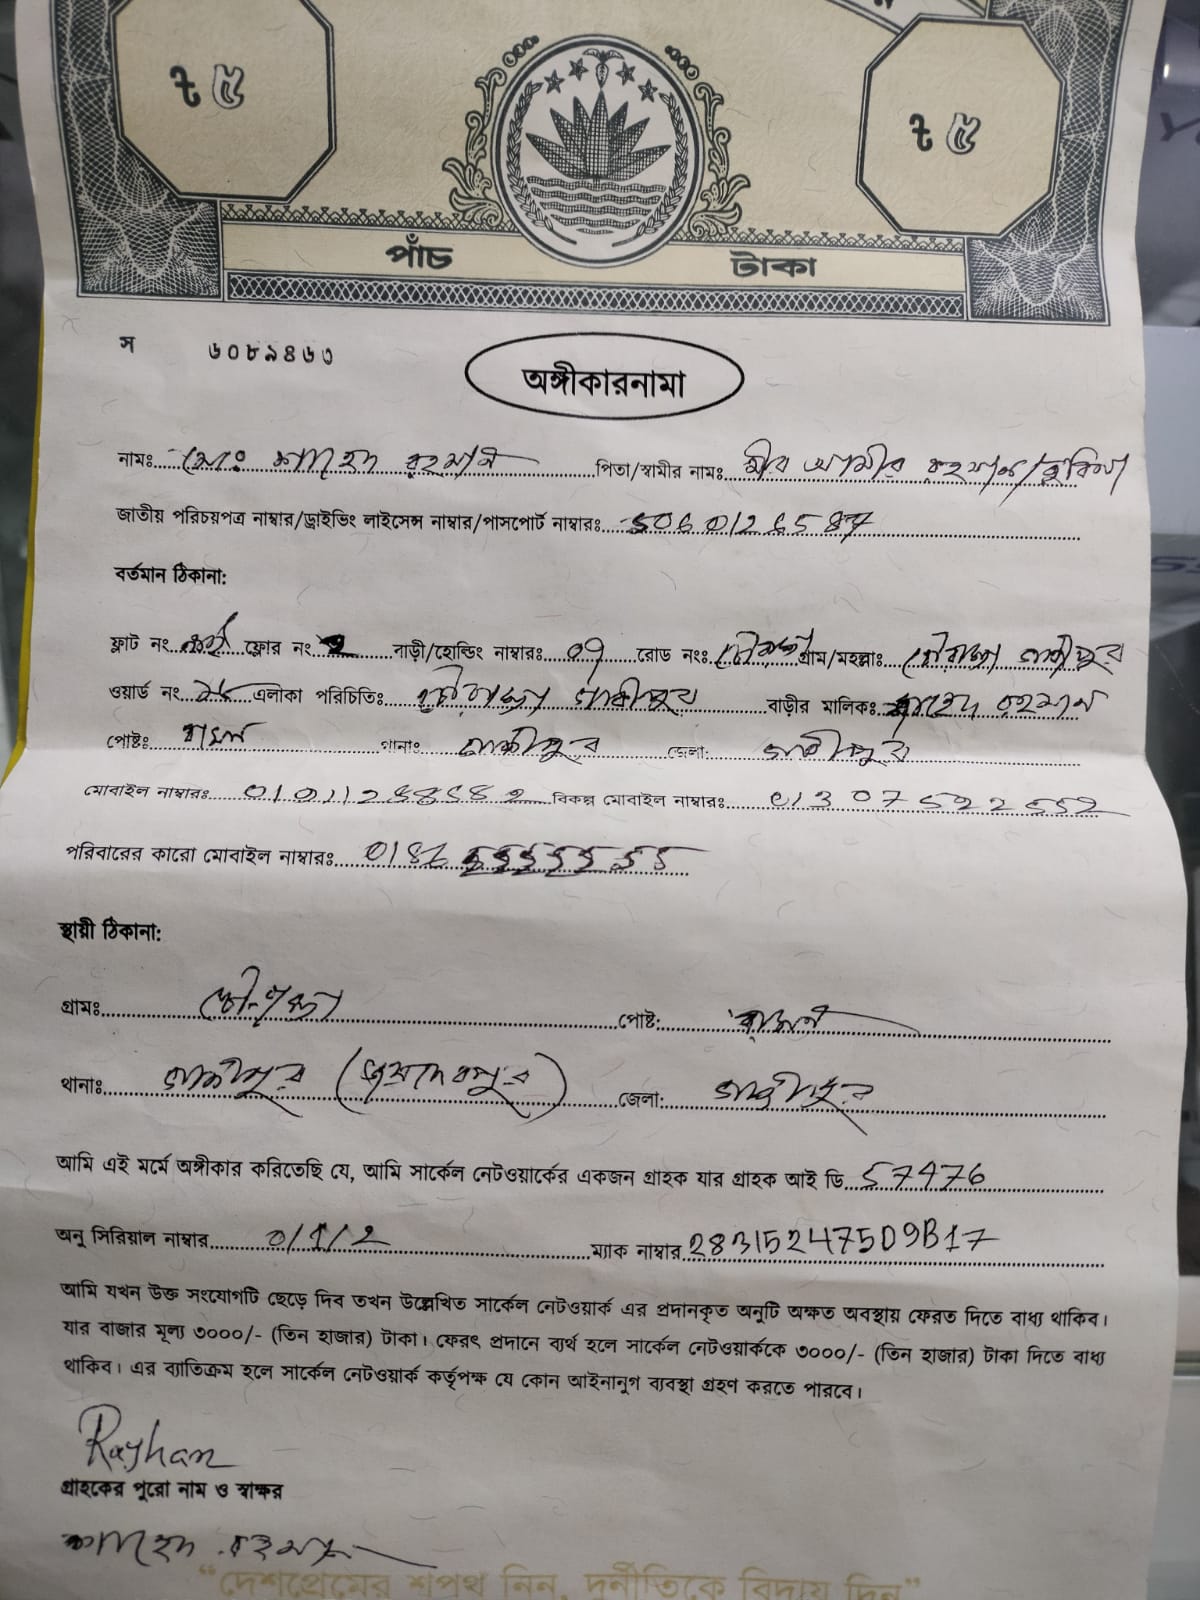 ৳ ৫
৳ ৫
পাঁচ টাকা
স ৬০৮৯৪৬৩
অঙ্গীকারনামা
নামঃ মোঃ রহমান পিতা/স্বামীর নামঃ মীর আমীর রহমান/
জাতীয় পরিচয়পত্র নাম্বার/ড্রাইভিং লাইসেন্স নাম্বার/পাসপোর্ট নাম্বারঃ
বর্তমান ঠিকানা:
ফ্লাট নং ফ্লোর নং বাড়ী/হোল্ডিং নাম্বারঃ রোড নংঃ গ্রাম/মহল্লাঃ গাজীপুর
ওয়ার্ড নং এলাকা পরিচিতিঃ গাজীপুর বাড়ীর মালিকঃ রহমান
পোষ্টঃ থানাঃ গাজীপুর জেলা: গাজীপুর
মোবাইল নাম্বারঃ বিকল্প মোবাইল নাম্বারঃ 01307522552
পরিবারের কারো মোবাইল নাম্বারঃ
স্থায়ী ঠিকানা:
গ্রামঃ পোষ্ট:
থানাঃ গাজীপুর জেলা: গাজীপুর
আমি এই মর্মে অঙ্গীকার করিতেছি যে, আমি সার্কেল নেটওয়ার্কের একজন গ্রাহক যার গ্রাহক আই ডি 57476
অনু সিরিয়াল নাম্বার 0/1/2 ম্যাক নাম্বার 28315247509B17
আমি যখন উক্ত সংযোগটি ছেড়ে দিব তখন উল্লেখিত সার্কেল নেটওয়ার্ক এর প্রদানকৃত অনুটি অক্ষত অবস্থায় ফেরত দিতে বাধ্য থাকিব।
যার বাজার মূল্য ৩০০০/- (তিন হাজার) টাকা। ফেরৎ প্রদানে ব্যর্থ হলে সার্কেল নেটওয়ার্ককে ৩০০০/- (তিন হাজার) টাকা দিতে বাধ্য
থাকিব। এর ব্যাতিক্রম হলে সার্কেল নেটওয়ার্ক কর্তৃপক্ষ যে কোন আইনানুগ ব্যবস্থা গ্রহণ করতে পারবে।
Rayhan
গ্রাহকের পুরো নাম ও স্বাক্ষর
রহমান
“দেশপ্রেমের শপথ নিন, দুর্নীতিকে বিদায় দিন”